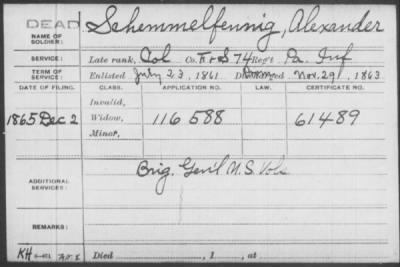 DEAD
NAME OF SOLDIER: Schemmelfennig, Alexander
SERVICE: Late rank, Col Co. F & S 74 Reg't Pa. Inf
TERM OF SERVICE: Enlisted July 23, 1861 Discharged Nov. 29, 1863
DATE OF FILING. CLASS. APPLICATION NO. LAW. CERTIFICATE NO.
Invalid,
1865 Dec 2 Widow, 116 588 61489
Minor,
ADDITIONAL SERVICES: Brig. Gen'l U.S. Vols
REMARKS:
KH
Died , 1 , at